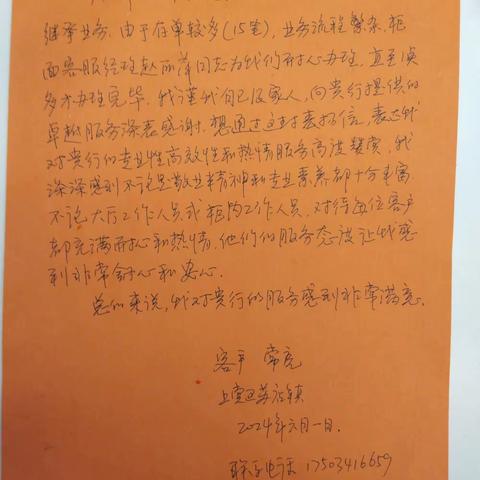 继承业务,由于存单较多(15笔),业务流程繁杂,柜
面客服经理赵丽萍同志为我们耐心办理,直至
多才办理完毕。我谨代我自己及家人,向贵行提供的
卓越服务深表感谢,想通过这封表扬信,表达我
对贵行的专业性高效性和热情服务高度赞赏,我
深深感到不论是敬业精神和专业素养都十分丰富
不论大厅工作人员或柜内工作人员,对待每位客户
都充满耐心和热情,他们的服务态度让我感
到非常舒心和安心。
总的来说,我对贵行的服务感到非常满意。
客户 常亮
上党区苏店镇
2024年六月一日.
联系电话 17503416659